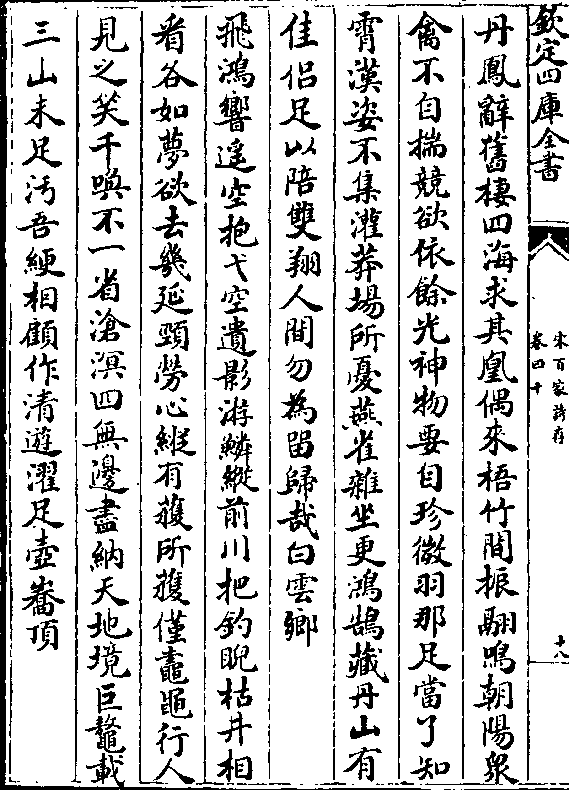 欽定四庫全書
宋百家詩存
卷四十
十八
丹鳳辭舊棲四海求其凰偶來梧竹間振翮鳴朝陽衆
禽不自揣競欲依餘光神物要自珍微羽那足當了知
霄漢姿不集灌莽場所憂燕雀雜坐更鴻鵠藏丹山有
佳侶足以陪雙翔人間勿為留歸哉白雲鄉
飛鴻響遥空抱弋空遺影游鱗縱前川把釣睨枯井相
看各如夢欲去幾延頸勞心縱有獲所獲僅鼃黽行人
見之笑千喚不一省滄溟四無邊盡納天地境巨鼇載
三山未足汚吾綆相顧作清遊濯足壺嶠頂